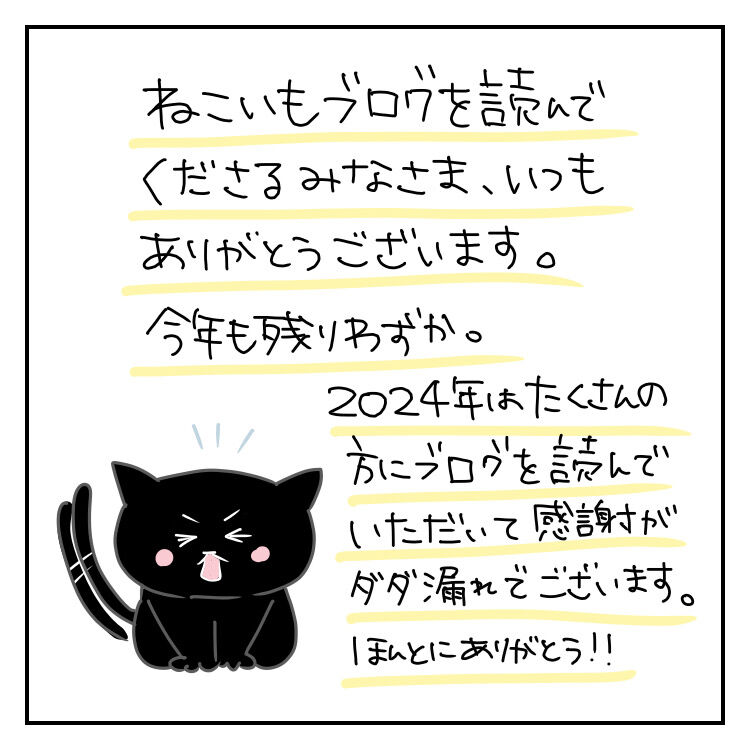 ねこいもブログを読んで
くださるみなさま、いつも
ありがとうございます。
今年も残りわずか。
2024年はたくさんの
方にブログを読んで
いただいて感謝が
ダダ漏れでございます。
ほんとにありがとう!!